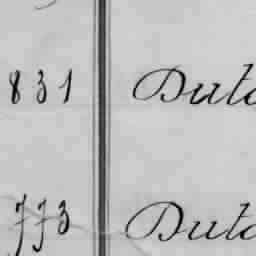 831 Dutc
773 Dutc